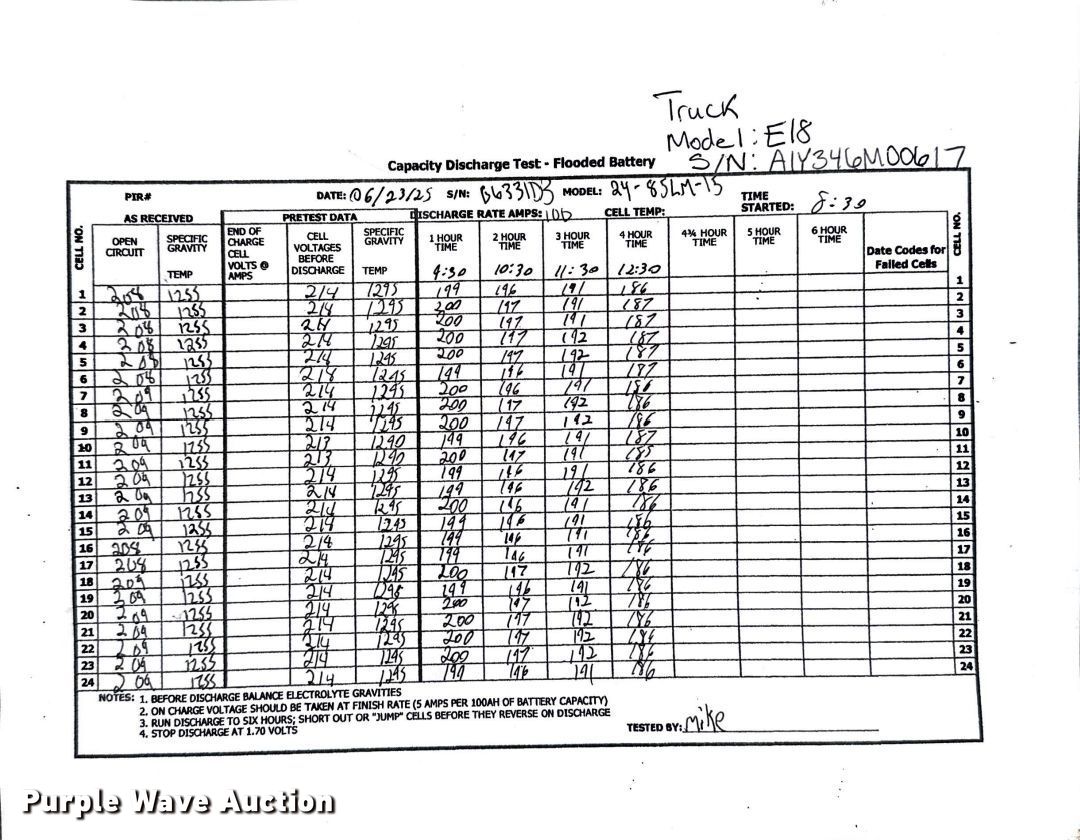 Truck
Model: E18
S/N: A1Y346M00617
Capacity Discharge Test - Flooded Battery
PIR# DATE: 06/23/25 S/N: MODEL: 24-85LM-15 TIME STARTED: 8:30
AS RECEIVED PRETEST DATA DISCHARGE RATE AMPS: CELL TEMP:
CELL NO. OPEN CIRCUIT SPECIFIC GRAVITY TEMP END OF CHARGE CELL VOLTS @ AMPS CELL VOLTAGES BEFORE DISCHARGE SPECIFIC GRAVITY TEMP 1 HOUR TIME 2 HOUR TIME 3 HOUR TIME 4 HOUR TIME 4¾ HOUR TIME 5 HOUR TIME 6 HOUR TIME Date Codes for Failed Cells CELL NO.
10:30 11:30 12:30
1 208 1255 214 1295 199 196 191 186 1
2 208 1255 214 1295 200 197 191 187 2
3 208 1255 214 1295 200 197 191 187 3
4 208 1255 214 1295 200 197 192 187 4
5 208 1255 214 1295 200 197 192 187 5
6 208 1255 214 1295 199 196 191 187 6
7 209 1255 214 1295 200 196 191 186 7
8 209 1255 214 1295 200 197 192 186 8
9 209 1255 214 1295 200 197 192 186 9
10 209 1255 213 1290 199 196 191 187 10
11 209 1255 213 1290 200 197 191 185 11
12 209 1255 214 1295 199 196 191 186 12
13 209 1255 214 1295 199 196 192 186 13
14 209 1255 214 1295 200 196 191 186 14
15 209 1255 214 1295 199 196 191 186 15
16 208 1255 214 1295 199 196 191 186 16
17 208 1255 214 1295 199 196 191 186 17
18 209 1255 214 1295 200 197 192 186 18
19 209 1255 214 1295 199 196 191 186 19
20 209 1255 214 1295 200 197 192 186 20
21 209 1255 214 1295 200 197 192 186 21
22 209 1255 214 1295 200 197 192 186 22
23 209 1255 214 1295 200 197 192 186 23
24 209 1255 214 1295 199 196 191 186 24
NOTES: 1. BEFORE DISCHARGE BALANCE ELECTROLYTE GRAVITIES
2. ON CHARGE VOLTAGE SHOULD BE TAKEN AT FINISH RATE (5 AMPS PER 100AH OF BATTERY CAPACITY)
3. RUN DISCHARGE TO SIX HOURS; SHORT OUT OR "JUMP" CELLS BEFORE THEY REVERSE ON DISCHARGE
4. STOP DISCHARGE AT 1.70 VOLTS
TESTED BY: Mike
Purple Wave Auction